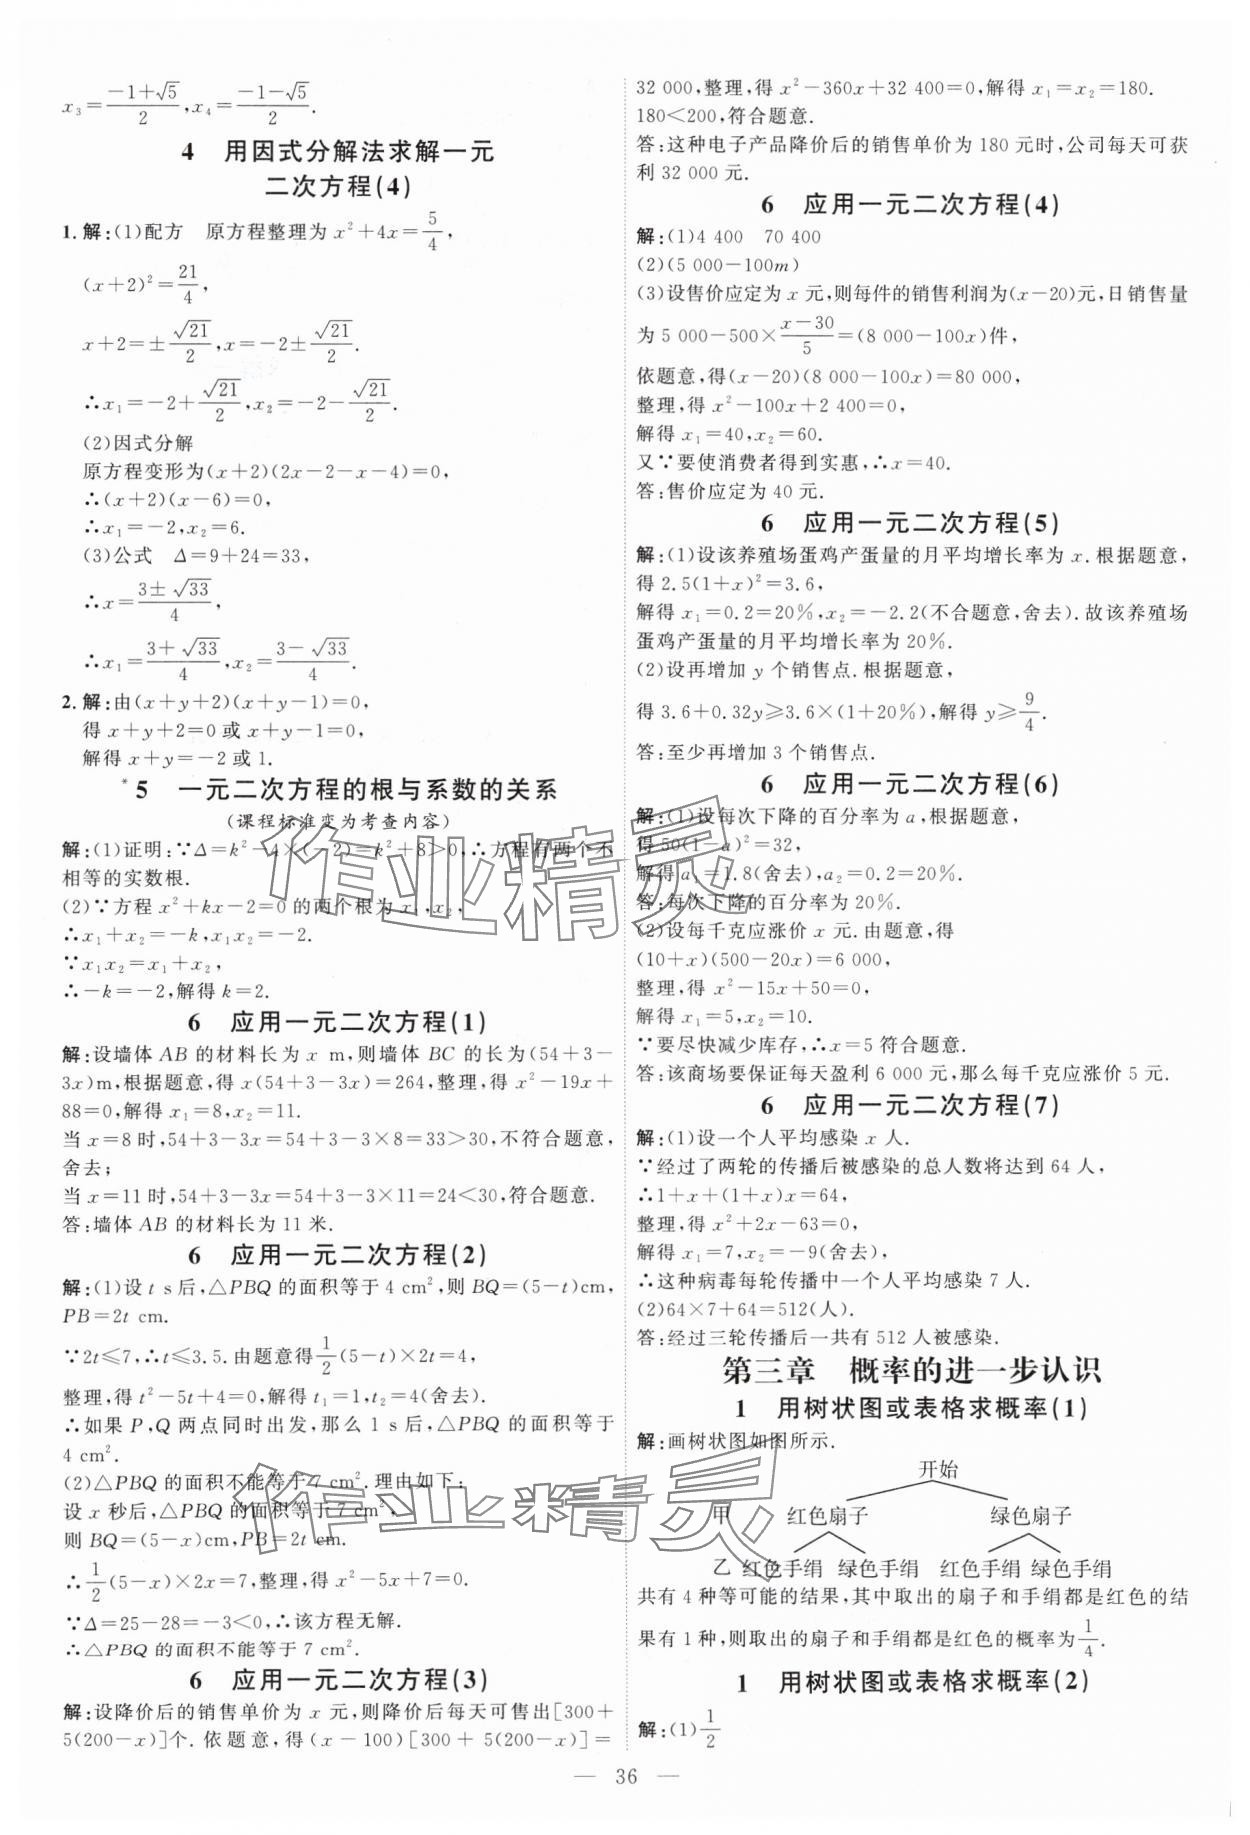 x₃=(-1+√5)/2,x₄=(-1-√5)/2.
4 用因式分解法求解一元
二次方程(4)
1.解:(1)配方 原方程整理为 x²+4x=5/4,
(x+2)²=21/4,
x+2=±√21/2,x=-2±√21/2.
∴x₁=-2+√21/2,x₂=-2-√21/2.
(2)因式分解
原方程变形为(x+2)(2x-2-x-4)=0,
∴(x+2)(x-6)=0,
∴x₁=-2,x₂=6.
(3)公式 Δ=9+24=33,
∴x=(3±√33)/4,
∴x₁=(3+√33)/4,x₂=(3-√33)/4.
2.解:由(x+y+2)(x+y-1)=0,
得 x+y+2=0 或 x+y-1=0,
解得 x+y=-2 或 1.
*5 一元二次方程的根与系数的关系
(课程标准变为考查内容)
解:(1)证明:∵Δ=k²-4×(-2)=k²+8>0,∴方程有两个不
相等的实数根.
(2)∵方程 x²+kx-2=0 的两个根为 x₁,x₂,
∴x₁+x₂=-k,x₁x₂=-2.
∵x₁x₂=x₁+x₂,
∴-k=-2,解得 k=2.
6 应用一元二次方程(1)
解:设墙体 AB 的材料长为 x m,则墙体 BC 的长为(54+3-
3x)m,根据题意,得 x(54+3-3x)=264,整理,得 x²-19x+
88=0,解得 x₁=8,x₂=11.
当 x=8 时,54+3-3x=54+3-3×8=33>30,不符合题意,
舍去;
当 x=11 时,54+3-3x=54+3-3×11=24<30,符合题意.
答:墙体 AB 的材料长为 11 米.
6 应用一元二次方程(2)
解:(1)设 t s 后,△PBQ 的面积等于 4 cm²,则 BQ=(5-t)cm,
PB=2t cm.
∵2t≤7,∴t≤3.5.由题意得1/2(5-t)×2t=4,
整理,得 t²-5t+4=0,解得 t₁=1,t₂=4(舍去).
∴如果 P,Q 两点同时出发,那么 1 s 后,△PBQ 的面积等于
4 cm².
(2)△PBQ 的面积不能等于 7 cm².理由如下:
设 x 秒后,△PBQ 的面积等于 7 cm²,
则 BQ=(5-x)cm,PB=2t cm.
∴1/2(5-x)×2x=7,整理,得 x²-5x+7=0.
∵Δ=25-28=-3<0,∴该方程无解.
∴△PBQ 的面积不能等于 7 cm².
6 应用一元二次方程(3)
解:设降价后的销售单价为 x 元,则降价后每天可售出[300+
5(200-x)]个.依题意,得(x-100)[300+5(200-x)]=
32 000,整理,得 x²-360x+32 400=0,解得 x₁=x₂=180.
180<200,符合题意.
答:这种电子产品降价后的销售单价为 180 元时,公司每天可获
利 32 000 元.
6 应用一元二次方程(4)
解:(1)4 400 70 400
(2)(5 000-100m)
(3)设售价应定为 x 元,则每件的销售利润为(x-20)元,日销售量
为 5 000-500×(x-30)/5=(8 000-100x)件,
依题意,得(x-20)(8 000-100x)=80 000,
整理,得 x²-100x+2 400=0,
解得 x₁=40,x₂=60.
又∵要使消费者得到实惠,∴x=40.
答:售价应定为 40 元.
6 应用一元二次方程(5)
解:(1)设该养殖场蛋鸡产蛋量的月平均增长率为 x.根据题意,
得 2.5(1+x)²=3.6,
解得 x₁=0.2=20%,x₂=-2.2(不合题意,舍去).故该养殖场
蛋鸡产蛋量的月平均增长率为 20%.
(2)设再增加 y 个销售点.根据题意,
得 3.6+0.32y≥3.6×(1+20%),解得 y≥9/4.
答:至少再增加 3 个销售点.
6 应用一元二次方程(6)
解:(1)设每次下降的百分率为 a,根据题意,
得 50(1-a)²=32,
解得 a₁=1.8(舍去),a₂=0.2=20%.
答:每次下降的百分率为 20%.
(2)设每千克应涨价 x 元.由题意,得
(10+x)(500-20x)=6 000,
整理,得 x²-15x+50=0,
解得 x₁=5,x₂=10.
∵要尽快减少库存,∴x=5 符合题意.
答:该商场要保证每天盈利 6 000 元,那么每千克应涨价 5 元.
6 应用一元二次方程(7)
解:(1)设一个人平均感染 x 人.
∵经过了两轮的传播后被感染的总人数将达到 64 人,
∴1+x+(1+x)x=64,
整理,得 x²+2x-63=0,
解得 x₁=7,x₂=-9(舍去),
∴这种病毒每轮传播中一个人平均感染 7 人.
(2)64×7+64=512(人).
答:经过三轮传播后一共有 512 人被感染.
第三章 概率的进一步认识
1 用树状图或表格求概率(1)
解:画树状图如图所示.
开始
甲 红色扇子 绿色扇子
乙 红色手绢 绿色手绢 红色手绢 绿色手绢
共有 4 种等可能的结果,其中取出的扇子和手绢都是红色的结
果有 1 种,则取出的扇子和手绢都是红色的概率为1/4.
1 用树状图或表格求概率(2)
解:(1)1/2
— 36 —
作业精灵
作业精灵